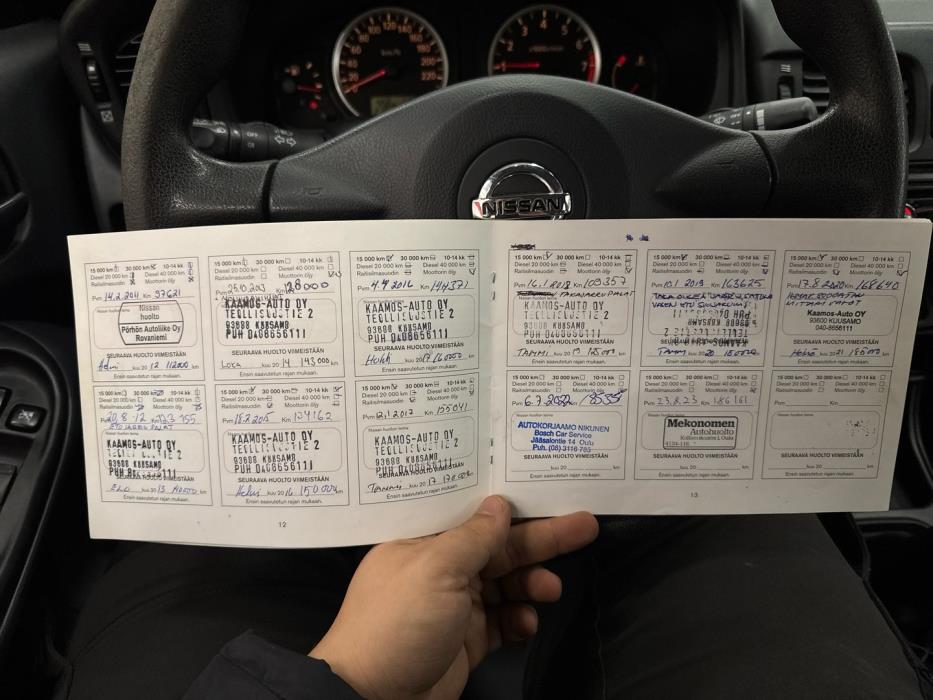 km/h
20
40
60
80
100
120
140
160
180
200
220
1
2
3
4
5
6
7
NISSAN
15 000 km 30 000 km 10-14 kk
Diesel 20 000 km Diesel 40 000 km
Raitisilmasuodin Moottorin öljy
Pvm 14.2.2011 Km 97621
Nissan
huolto
Pörhön Autoliike Oy
Rovaniemi
SEURAAVA HUOLTO VIIMEISTÄÄN
kuu 20 12 112000 km
Ensin saavutetun rajan mukaan.
15 000 km 30 000 km 10-14 kk
Diesel 20 000 km Diesel 40 000 km
Raitisilmasuodin Moottorin öljy
25.10.2013 128000
KAAMOS-AUTO OY
TEOLLISUUSTIE 2
93600 KUUSAMO
PUH 0408656111
SEURAAVA HUOLTO VIIMEISTÄÄN
LOKA kuu 20 14 143000 km
Ensin saavutetun rajan mukaan.
15 000 km 30 000 km 10-14 kk
Diesel 20 000 km Diesel 40 000 km
Raitisilmasuodin Moottorin öljy
Pvm 4.4 2016 Km 144371
KAAMOS-AUTO OY
TEOLLISUUSTIE 2
93600 KUUSAMO
PUH 0408656111
SEURAAVA HUOLTO VIIMEISTÄÄN
Huhti kuu 2017 km
Ensin saavutetun rajan mukaan.
15 000 km 30 000 km 10-14 kk
Diesel 20 000 km Diesel 40 000 km
Raitisilmasuodin Moottorin öljy
20.8.12
KAAMOS-AUTO OY
TEOLLISUUSTIE 2
93600 KUUSAMO
PUH 0408656111
ELO kuu 20 13 km
Ensin saavutetun rajan mukaan.
15 000 km 30 000 km 10-14 kk
Diesel 20 000 km Diesel 40 000 km
Raitisilmasuodin Moottorin öljy
2015 Km 134162
KAAMOS-AUTO OY
TEOLLISUUSTIE 2
93600 KUUSAMO
PUH 0408656111
SEURAAVA HUOLTO VIIMEISTÄÄN
Helmi kuu 20 16 150 000 km
Ensin saavutetun rajan mukaan.
15 000 km 30 000 km 10-14 kk
Diesel 20 000 km Diesel 40 000 km
Raitisilmasuodin Moottorin öljy
2017 Km 155041
KAAMOS-AUTO OY
TEOLLISUUSTIE 2
93600 KUUSAMO
PUH 0408656111
SEURAAVA HUOLTO VIIMEISTÄÄN
kuu 20 17 170000 km
Ensin saavutetun rajan mukaan.
12
15 000 km 30 000 km 10-14 kk
Diesel 20 000 km Diesel 40 000 km
Raitisilmasuodin Moottorin öljy
Pvm 16.1.2018 Km 160357
TAKAJARRUPALAT
KAAMOS-AUTO OY
TEOLLISUUSTIE 2
93600 KUUSAMO
PUH 0408656111
SEURAAVA HUOLTO VIIMEISTÄÄN
TAMMI kuu 20 km
Ensin saavutetun rajan mukaan.
15 000 km 30 000 km 10-14 kk
Diesel 20 000 km Diesel 40 000 km
Raitisilmasuodin Moottorin öljy
Pvm 10.1.2019 Km 163625
SEURAAVA HUOLTO VIIMEISTÄÄN
TAMMI kuu 20 20 km
Ensin saavutetun rajan mukaan.
15 000 km 30 000 km 10-14 kk
Diesel 20 000 km Diesel 40 000 km
Raitisilmasuodin Moottorin öljy
Pvm 17.8.2020 Km 168640
Kaamos-Auto OY
93600 KUUSAMO
040-8656111
SEURAAVA HUOLTO VIIMEISTÄÄN
kuu 20 21 185000 km
Ensin saavutetun rajan mukaan.
15 000 km 30 000 km 10-14 kk
Diesel 20 000 km Diesel 40 000 km
Raitisilmasuodin Moottorin öljy
Pvm 6.7.2022 Km
AUTOKORJAAMO NIKUNEN
Bosch Car Service
Jääsalontie 14 Oulu
Puh. (08) 3116 785
kuu 20 km
Ensin saavutetun rajan mukaan.
15 000 km 30 000 km 10-14 kk
Diesel 20 000 km Diesel 40 000 km
Raitisilmasuodin Moottorin öljy
Pvm 23.8.23 Km 186161
Mekonomen
Autohuolto
SEURAAVA HUOLTO VIIMEISTÄÄN
kuu 20 km
Ensin saavutetun rajan mukaan.
15 000 km 30 000 km 10-14 kk
Diesel 20 000 km Diesel 40 000 km
Raitisilmasuodin Moottorin öljy
Pvm Km
Nissan huollon leima
SEURAAVA HUOLTO VIIMEISTÄÄN
kuu 20 km
Ensin saavutetun rajan mukaan.
13